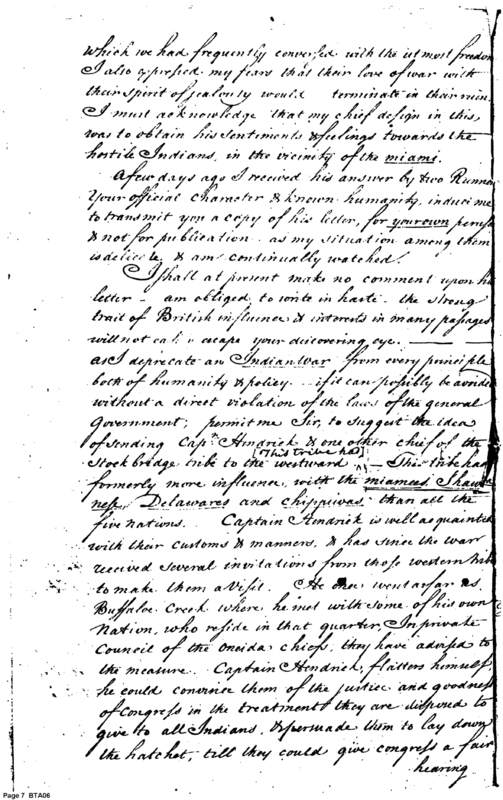 which we had frequently conversed with the utmost freedom
I also expressed my fears that their love of war with
their spirit of jealousy would terminate in their ruin
I must acknowledge that my chief design in this,
was to obtain his sentiments & feelings towards the
hostile Indians, in the vicinity of the miami.
A few days ago I received his answer by two Runners
Your official character & known humanity, induce me
to transmit you a copy of his letter, for your own perusal
& not for publication as my situation among them
is delicate & am continually watched.
I shall at present make no comment upon his
letter – am obliged to write in haste – the strong
trait of British influence & interests in many passages
will not escape your discovering eye. —
as I deprecate an Indian War from every principle
both of humanity & policy – if it can possibly be avoided
without a direct violation of the laws of the general
Government; permit me Sir, to suggest the idea
of sending Capn. Hendrick & one other chief of the
(This tribe has)
Stockbridge tribe to the westward – This tribe had
formerly more influence, with the miamees Shaw
nese, Delawares and chippiwas than all the
five nations. Captain Hendrick is well acquainted
with their customs & manners, & has since the war
received several invitations from those western tribes
to make them a visit. He once went as far as
Buffaloe Creek where he met with some of his own
Nation, who reside in that quarter. In private
Council of the oneida chiefs, they have advised to
the measure. Captain Hendrick, flatters himself
he could convince them of the justice and goodness
of Congress in the treatment they are disposed to
give to all Indians, & persuade them to lay down
the hatchet, till they could give congress a fair
hearing
Page 7 BTA06